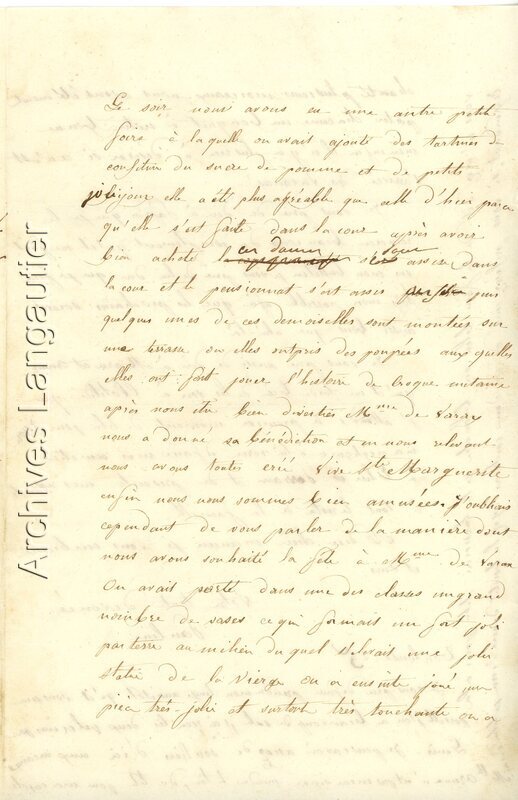 Le soir nous avons eu une autre petite
foire à laquelle on avait ajouté des tartines de
confiture du sucre de pomme et de petits
jolijoux elle a été plus agréable que celle d'hier parce
qu'elle s'est faite dans la cour après avoir
bien acheté ces dames assise dans
la cour et le pensionnat s'est assis puis
quelques unes de ces demoiselles sont montées sur
une terrasse ou elles ont pris des poupées aux quelles
elles ont fait jouer l'histoire de Croque mitaine
après nous être bien diverties Mme de Varax
nous a donné sa bénédiction et en nous relevant
nous avons toutes crié Vive Ste Marguerite
enfin nous nous sommes bien amusées. J'oubliais
cependant de vous parler de la manière dont
nous avons souhaité la fête à Mme de Varax
On avait porté dans une des classes un grand
nombre de vases ce qui formait un fort joli
parterre au milieu du quel s'élevait une jolie
statue de la Vierge on a ensuite joué une
pièce très-jolie et surtout très touchante on a
Archives Langautier